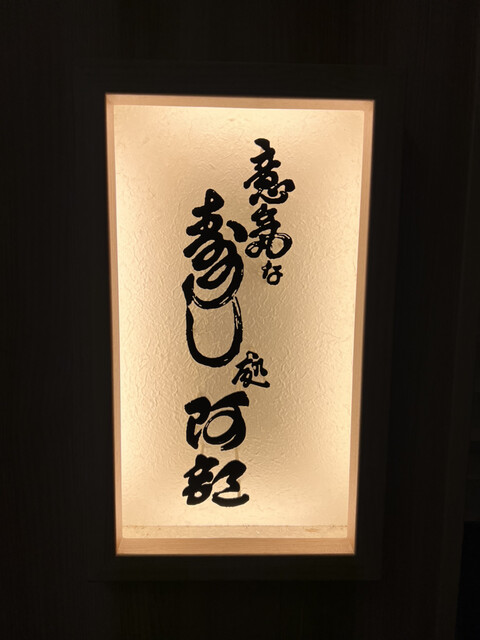 意気な
寿し処
阿部